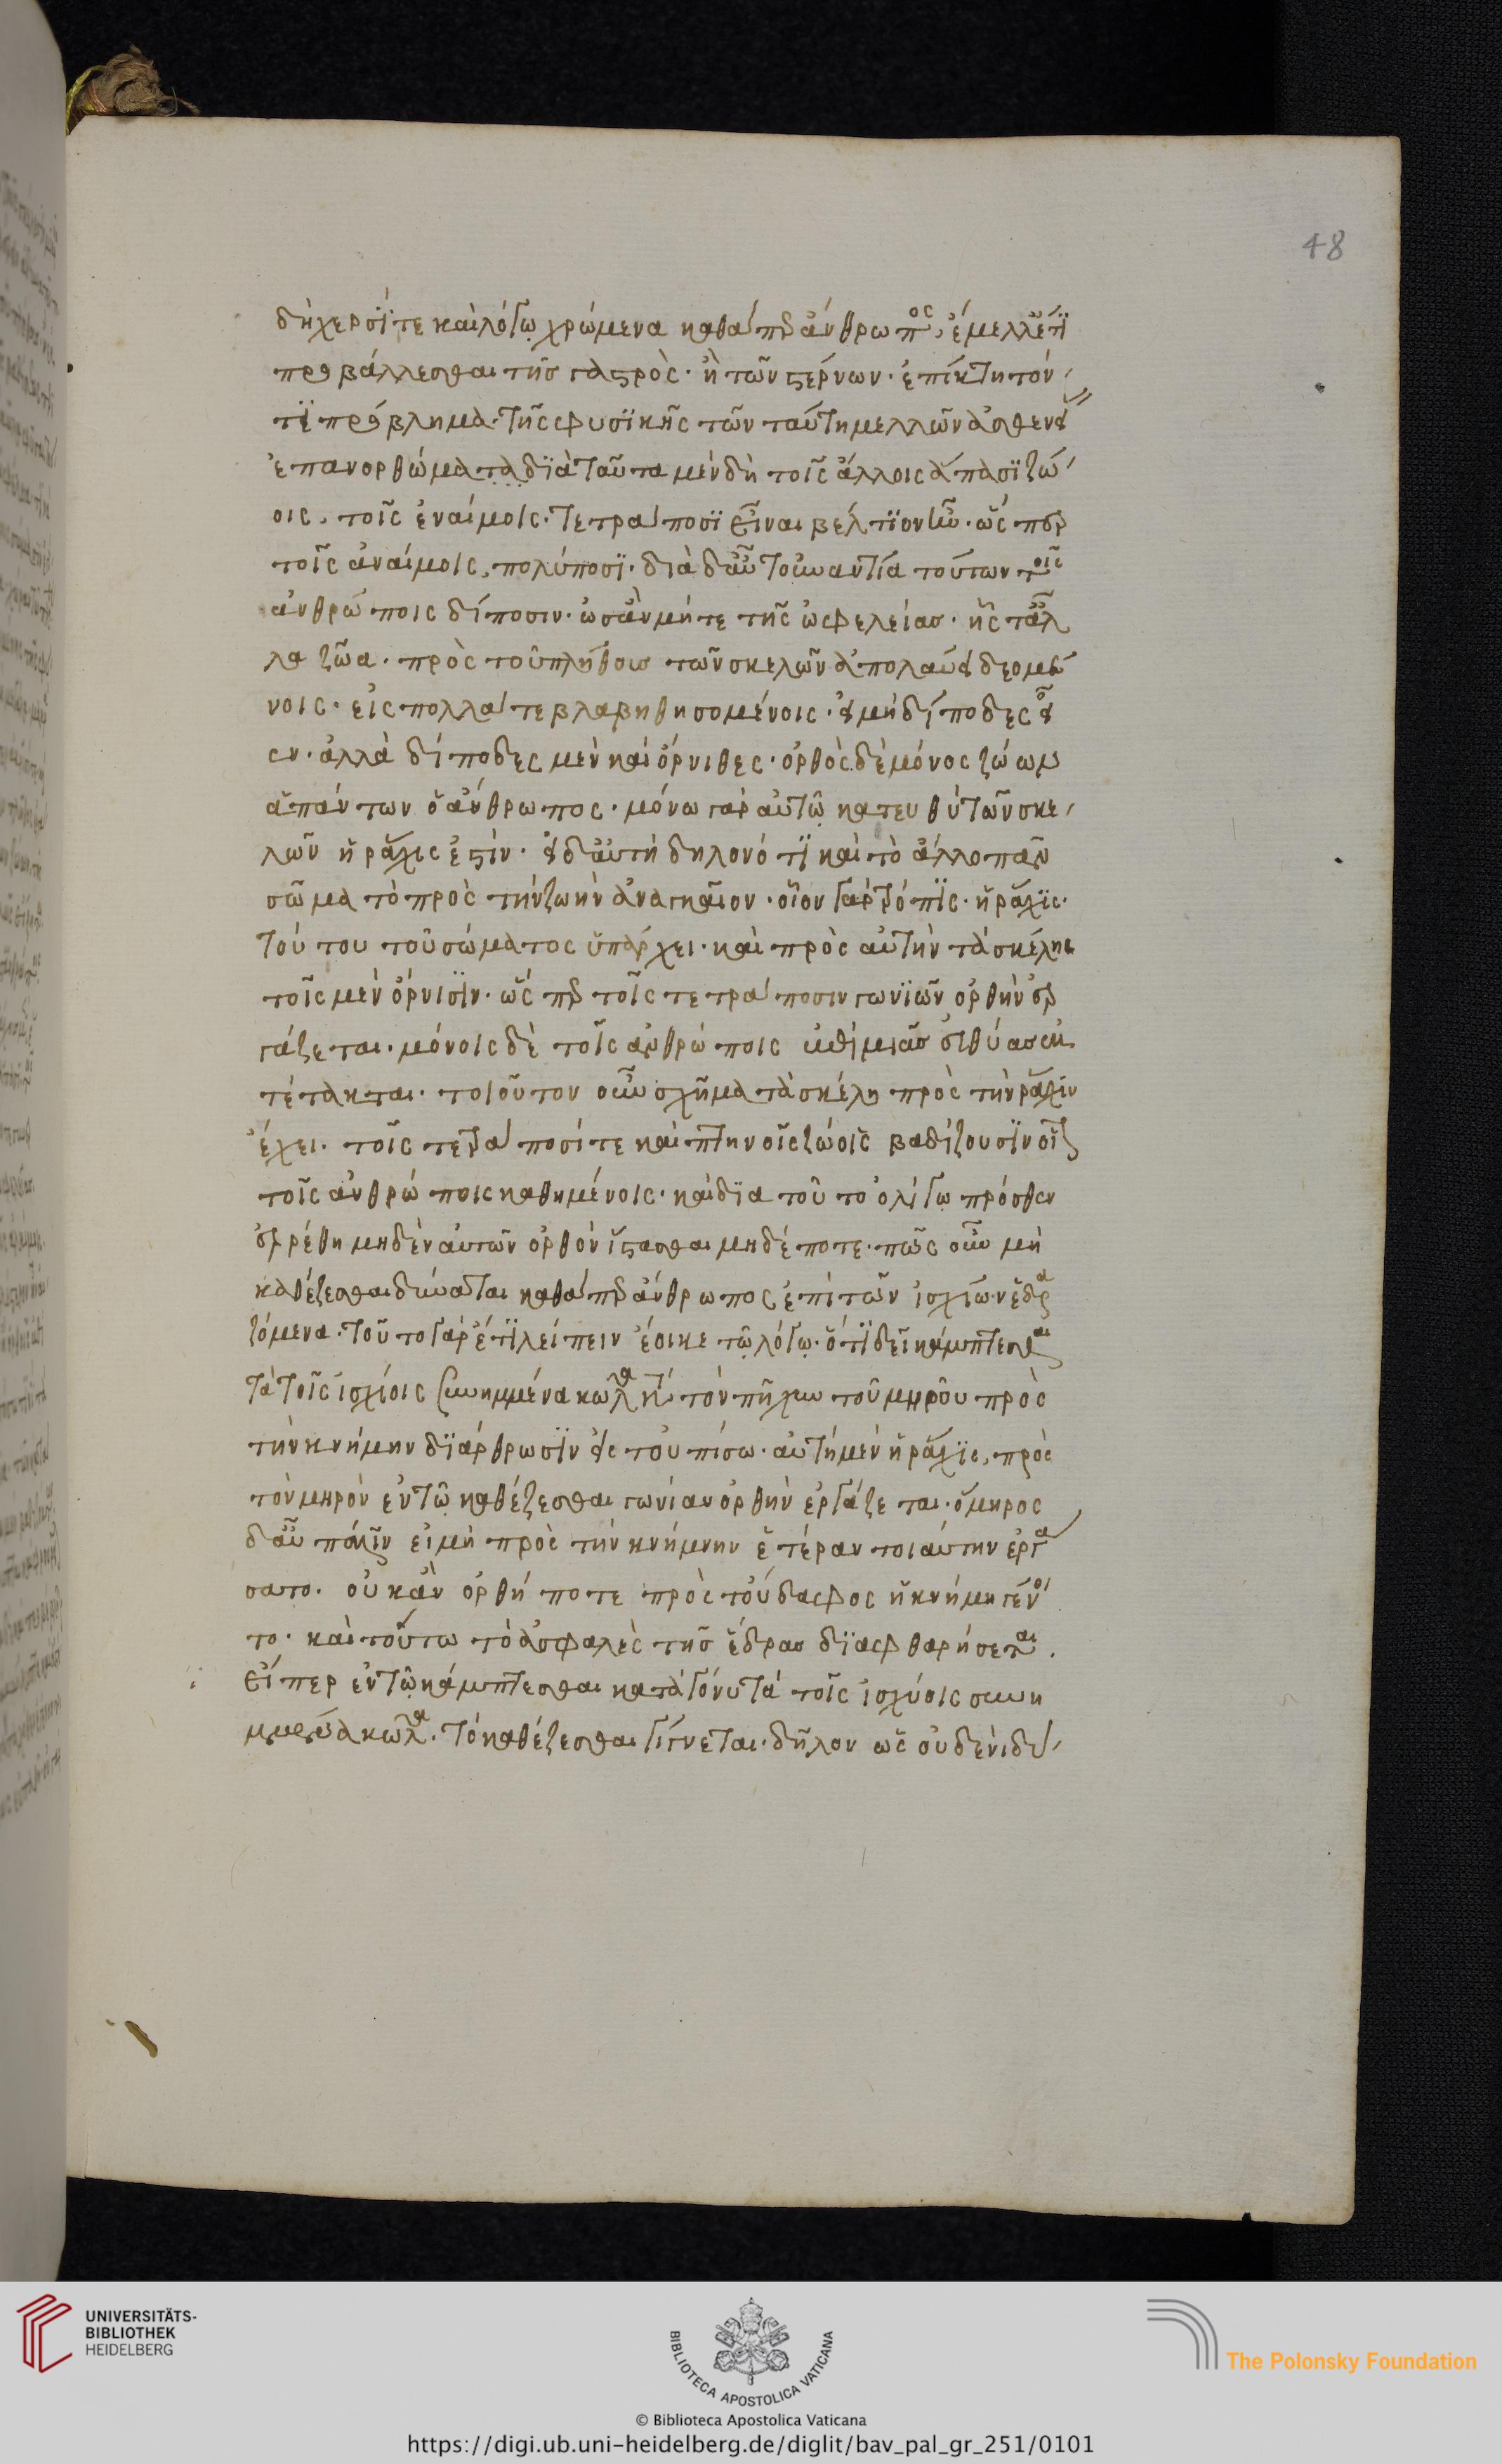 48
δὴ χερσί τε καὶ λόγω χρώμενα καθάπερ ἄνθρωπος, ἔμελλέ τϊ
προβάλλεσθαι τῆς γαστρὸς· ἢ τῶν στέρνων· ἐπίκτητόν
τϊ πρόβλημα· τῆς φυσϊκῆς τῶν ταύτη μελλῶν ἀσθενεί
ἐπανορθώματα διὰ ταῦτα μὲν δὴ τοῖς ἄλλοις ἅπασϊ ζώ
οις, τοῖς ἐναίμοις· τετράποσϊ εἶναι βέλτϊον ἦν· ὥσπερ
τοῖς ἀναίμοις, πολύποσϊ· διὰ δ' αὖ τοὐναντία τούτων τοῖς
ἀνθρώποις δίποσιν· ὡς ἂν μήτε τῆς ὠφελείας· ἧς τἆλ
λα ζῶα· πρὸς τοῦ πλήθους τῶν σκελῶν ἀπολαύει δεομέ
νοις· εἰς πολλά τε βλαβηθησομένοις· εἰ μὴ δίποδες εἶ
εν· ἀλλὰ δίποδες μὲν καὶ ὄρνιθες· ὀρθὸς δὲ μόνος ζώων
ἁπάντων ὁ ἄνθρωπος· μόνω γὰρ αὐτῶ κατευθὺ τῶν σκε
λῶν ἡ ράχις ἐστὶν· εἰ δ' αὐτὴ δηλονότϊ καὶ τὸ ἄλλο πᾶν
σῶμα τὸ πρὸς τὴν ζωὴν ἀναγκαῖον· οἷον γὰρ τρόπϊς· ἡ ράχϊς·
τούτου τοῦ σώματος ὑπάρχει· καὶ πρὸς αὐτὴν τὰ σκέλη
τοῖς μὲν ὄρνισϊν· ὥσπερ τοῖς τετράποσιν γωνϊῶν ὀρθὴν ἐρ
γάζεται· μόνοις δὲ τοῖς ἀνθρώποις
τέτακται· τοιοῦτον οὖν σχῆμα τὰ σκέλη πρὸς τὴν ράχϊν
ἔχει· τοῖς τετράποσί τε καὶ πτηνοῖς ζώοις βαδίζουσϊν οἷον
τοῖς ἀνθρώποις καθημένοις· καὶ δϊα τοῦτο ὀλίγω πρόσθεν
ἐρρέθη μηδὲν αὐτῶν ὀρθὸν ἵστασθαι μηδέποτε· πῶς οὖν μὴ
καθέζεσθαι δύναται καθάπερ ἄνθρωπος ἐπὶ τῶν ἰσχίων ἑδρα
ζόμενα· τοῦτο γὰρ ἔτϊ λείπειν ἔοικε τῶ λόγω· ὅτϊ δεῖ κάμπτεσθαι
τὰ τοῖς ἰσχίοις συνημμένα κῶλα κατὰ τὸν πῆχυν τοῦ μηροῦ πρὸς
τὴν κνήμην δϊάρθρωσϊν εἰς τοὐπίσω· αὐτὴ μὲν ἡ ράχϊς, πρὸς
τὸν μηρὸν ἐν τῶ καθέζεσθαι γωνίαν ὀρθὴν ἐργάζεται· ὁ μηρος
δ' αὖ πάλϊν εἰ μὴ πρὸς τὴν κνήμην ἑτέραν τοιαύτην ἐργά
σατο· οὐκ ἂν ὀρθή ποτε πρὸς τοὔδαφος ἡ κνήμη γένοι
το· καὶ τούτω τὸ ἀσφαλὲς τῆς ἕδρας δϊαφθαρήσεται.
εἴπερ ἐν τῶ κάμπτεσθαι κατὰ γόνυ τὰ τοῖς ἰσχύοις συνη
μμένα κῶλα· τὸ καθέζεσθαι γίγνεται· δῆλον ὡς οὐδενὶ δυ
UNIVERSITÄTS-
BIBLIOTHEK
HEIDELBERG
BIBLIOTECA APOSTOLICA VATICANA
The Polonsky Foundation
© Biblioteca Apostolica Vaticana
https://digi.ub.uni-heidelberg.de/diglit/bav_pal_gr_251/0101